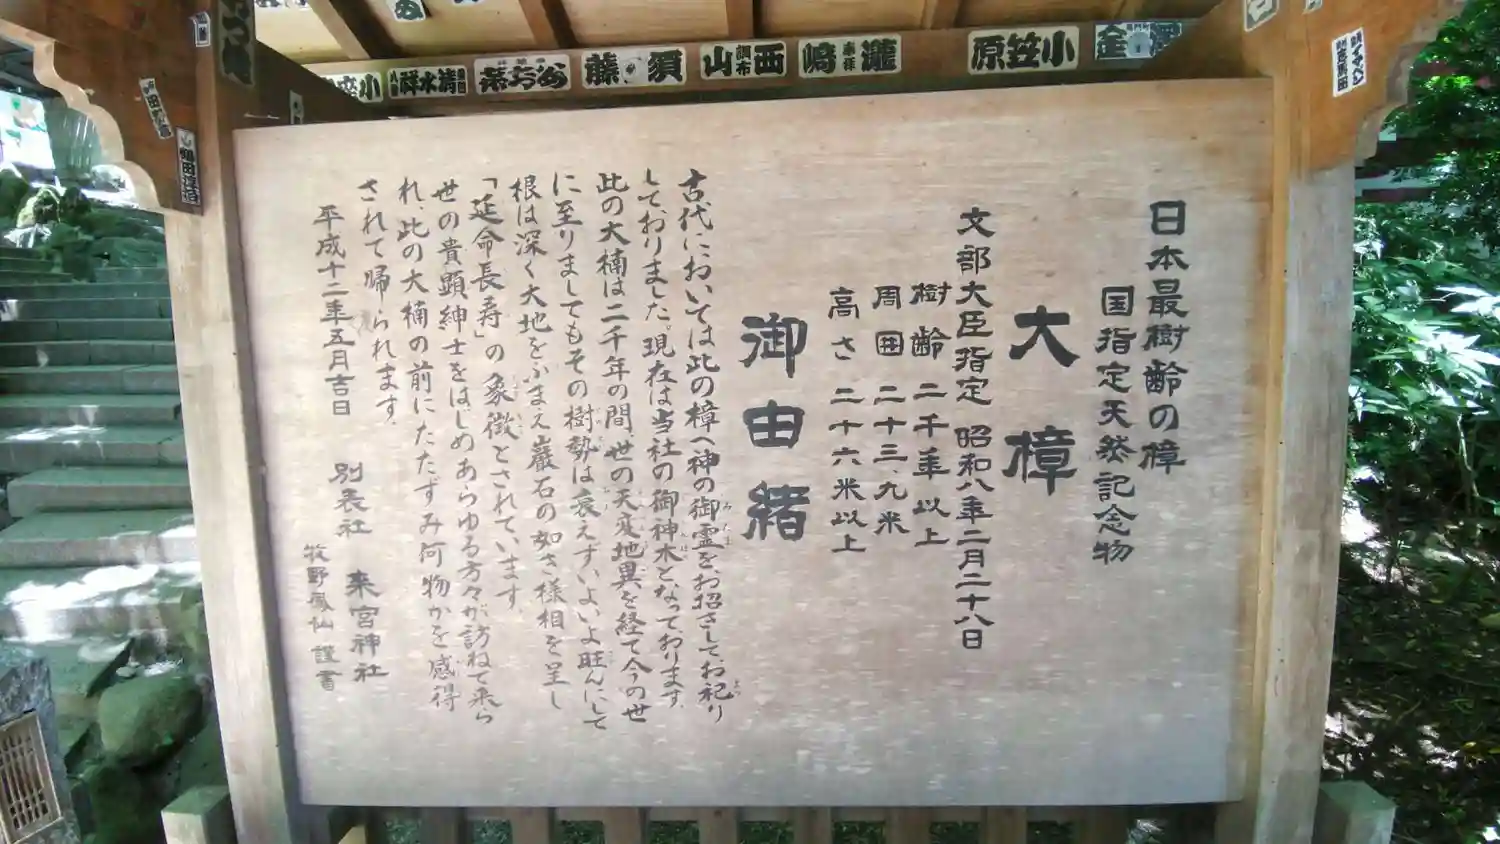 日本最樹齢の樟
国指定天然記念物
大樟
文部大臣指定 昭和八年二月二十八日
樹齢 二千年以上
周囲 二十三、九米
高さ 二十六米以上
御由緒
古代においては此の樟へ神の御霊をお招きしてお祀り
しておりました。現在は当社の御神木となっております。
此の大楠は二千年の間、世の天変地異を経て今の世
に至りましてもその樹勢は衰えずいよいよ旺んにして
根は深く大地をふまえ巌石の如き様相を呈し
「延命長寿」の象徴とされています。
世の貴顕紳士をはじめあらゆる方々が訪ねて来ら
れ、此の大楠の前にたたずみ何物かを感得
されて帰られます。
平成十二年五月吉日
別表社 来宮神社
牧野鳳仙 謹書
小笠原
瀧
嶋
西山
須藤
清水群